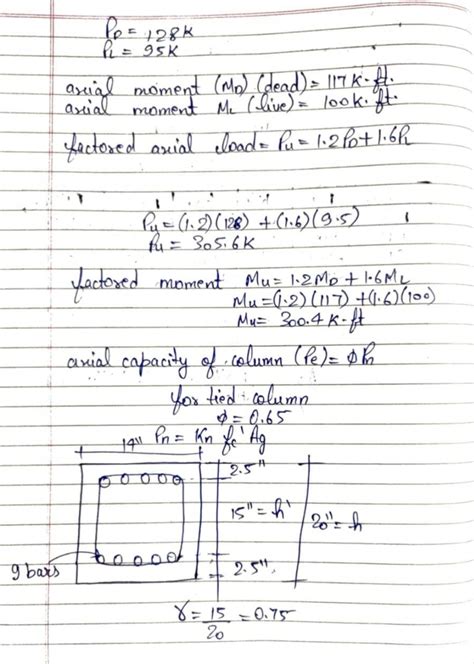 P_D = 128K
P_L = 95K
axial moment (M_D) (dead) = 117 K·ft.
axial moment M_L (live) = 100K·ft.
factored axial load = Pu = 1.2P_D + 1.6P_L
Pu = (1.2)(128) + (1.6)(9.5)
Pu = 305.6K
factored moment Mu = 1.2M_D + 1.6M_L
Mu = (1.2)(117) + (1.6)(100)
Mu = 300.4 K-ft
axial capacity of column (Pe) = φPn
for tied column
φ = 0.65
14" Pn = Kn fc' Ag
2.5"
15" = h'
20" = h
9 bars
2.5"
γ = 15/20 = 0.75